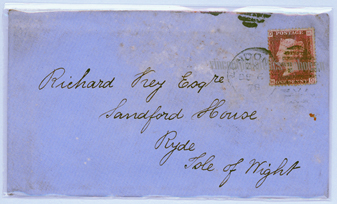 POSTAGE
LONDON
Richard Key Esqre
Sandford House
Ryde
Isle of Wight